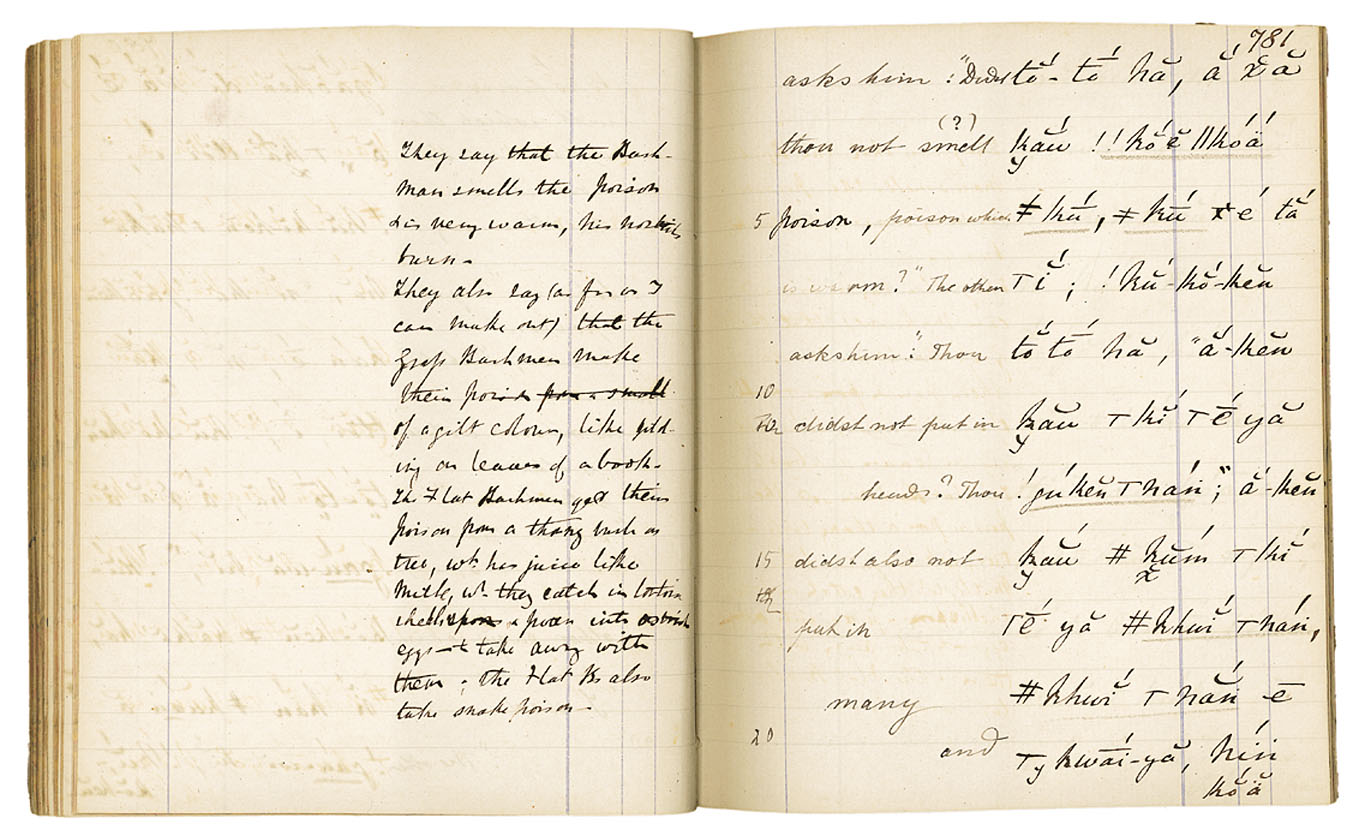 They say that the Bush-
man smells the poison
& is very warm, his nostrils
burn.
They also say (as far as I
can make out) that the
Grass Bushmen make
their poison from a small
of a gilt colour, like gild-
ing on leaves of a book.
The Flat Bushmen get their
poison from a thorny bush or
tree, wh. has juice like
Milk, wh. they catch in tortoise
shells & pour into ostrich
eggs & take away with
them; the Flat Bs also
take snake poison.
781
asks him: "Didst tŏ́-tŏ́ hă, ắ x̆ ă
(?)
thou not smell k̯ắu !!kŏ́ĕ ǁkŏ́ä
5 poison, poison which ǂkú̄, ǂkú̄ é tắ
is warm?" The other ⊤ĭ́; !kú-kŏ́-kĕn
asks him: "Thou tŏ́tŏ́ hă, "ắ-kĕn
10
didst not put in k̯ău ⊤kĭ́ ⊤é̄ yă
heads? Thou !gúkĕn ⊤nấn"; ắ-kĕn
15 didst also not k̯ău ǂkúm ⊤kĭ́
put in ⊤é̄ yă ǂkhwĭ́ ⊤nán,
many ǂkhwĭ́ ⊤nắn ē
20
and ⊤ykwā́i-yă, hín
kŏ́ä